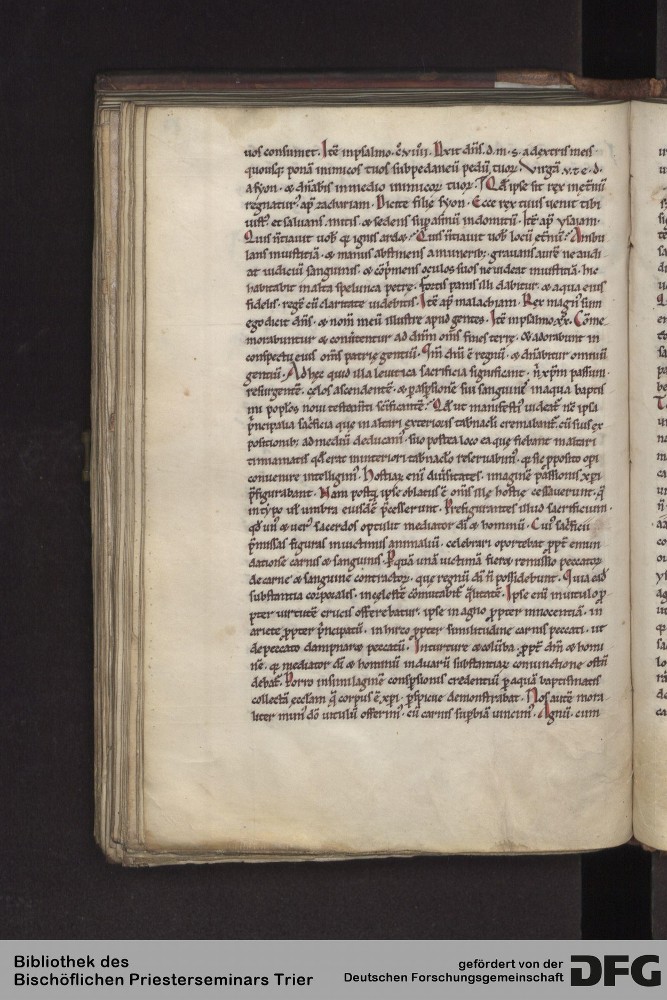 uos consumet. Ite in psalmo. cviiii. Dixit dns. d. m. s. a dextris meis
quousq; ponā inimicos tuos subpedaneū pedū tuor. Virgā v. t. e. d.
a syon. & dnabis in medio inimicor tuor. Qd ipse sit rex in etnū
regnatur' ap zachariam. Dicite filie syon. Ecce rex tuus uenit tibi
iust'. et saluans mitis. & sedens sup asinū indomitū. Itē ap ysaiam.
Quis ntiauit uob qr ignis ardet. Quis ntiauit uob locū etnū. Ambu
lans in iustitia. & manus abstinens a munerib; grauans aure ne audi
at iudiciū sanguinis. & cōprimens oculos suos ne uideat iniustitiā. hic
habitabit in alta spelunca petre. fortis panis illi dabitur. & aqua eius
fidelis. regē cū claritate uidebitis. Itē ap malachiam. Rex magn' sum
ego dicit dns. & nom meū illustre apud gentes. Itē in psalmo. xxi. Cōme
morabuntur & conutentur ad dnm oms fines terre. & adorabunt in
conspectu eius oms patrie gentiū. Qm dni ē regnū. & dnabitur omniū
gentiū. Ad hec quid illa leuitica sacrificia significant. n xpm passum.
resurgentē. celos ascendentē. & p aspsionē sui sanguinis in aqua baptis
mi poplos noui testamti scificantē. Qd ut manifesti' uideat' nc ipsa
principalia sacficia que in altari exterioris tabnacli cremabant'. cū suis ex
positionib; ad mediū deducam'. suo postea loco ea que fiebant in altari
timiamatis qd erat in interiori tabnaclo reseruabim'. qr sic pposito opi
conuenire intelligim'. Hostiar eni diuisitates. imaginē passionis xpi
pfigurabant. Nam postq ipse oblatus ē oms ille hostie cessauerunt. q
in typo ul umbra eiusdē pcesserunt. Prefigurantes illud sacrificium.
qd un' & uer' sacerdos optulit mediator di & hominū. Cui' sacficii
pmissas figuras in uictimis animaliū. celebrari oportebat ppt emun
datione carnis & sanguinis. P quā unā uictimā fieret remissio peccator
de carne & sanguine contractor. que regnū di n possidebunt. Quia ead
substantia corporalis. in celestē cōmutabit' qlitatē. Ipse eni in uitulo p
pter uirtutē crucis offerebatur. ipse in agno ppter innocentiā. in
ariete ppter principatū. in hirco ppter similitudinē carnis peccati. ut
de peccato dampnaret peccatū. In turture & colūba. ppt dm & homi
nē. qr mediator di & hominū in duarū substantiar coniunctione ostdi
debat'. Porro in similaginē conspsionis credentiū p aquā baptismatis
collectā ecclam q corpus ē xpi. pspicue demonstrabat. Nos autē mora
liter mun' dō uitulū offerim'. cū carnis supbiā uincim'. Agnū. cum
Bibliothek des
Bischöflichen Priesterseminars Trier
gefördert von der
Deutschen Forschungsgemeinschaft
DFG